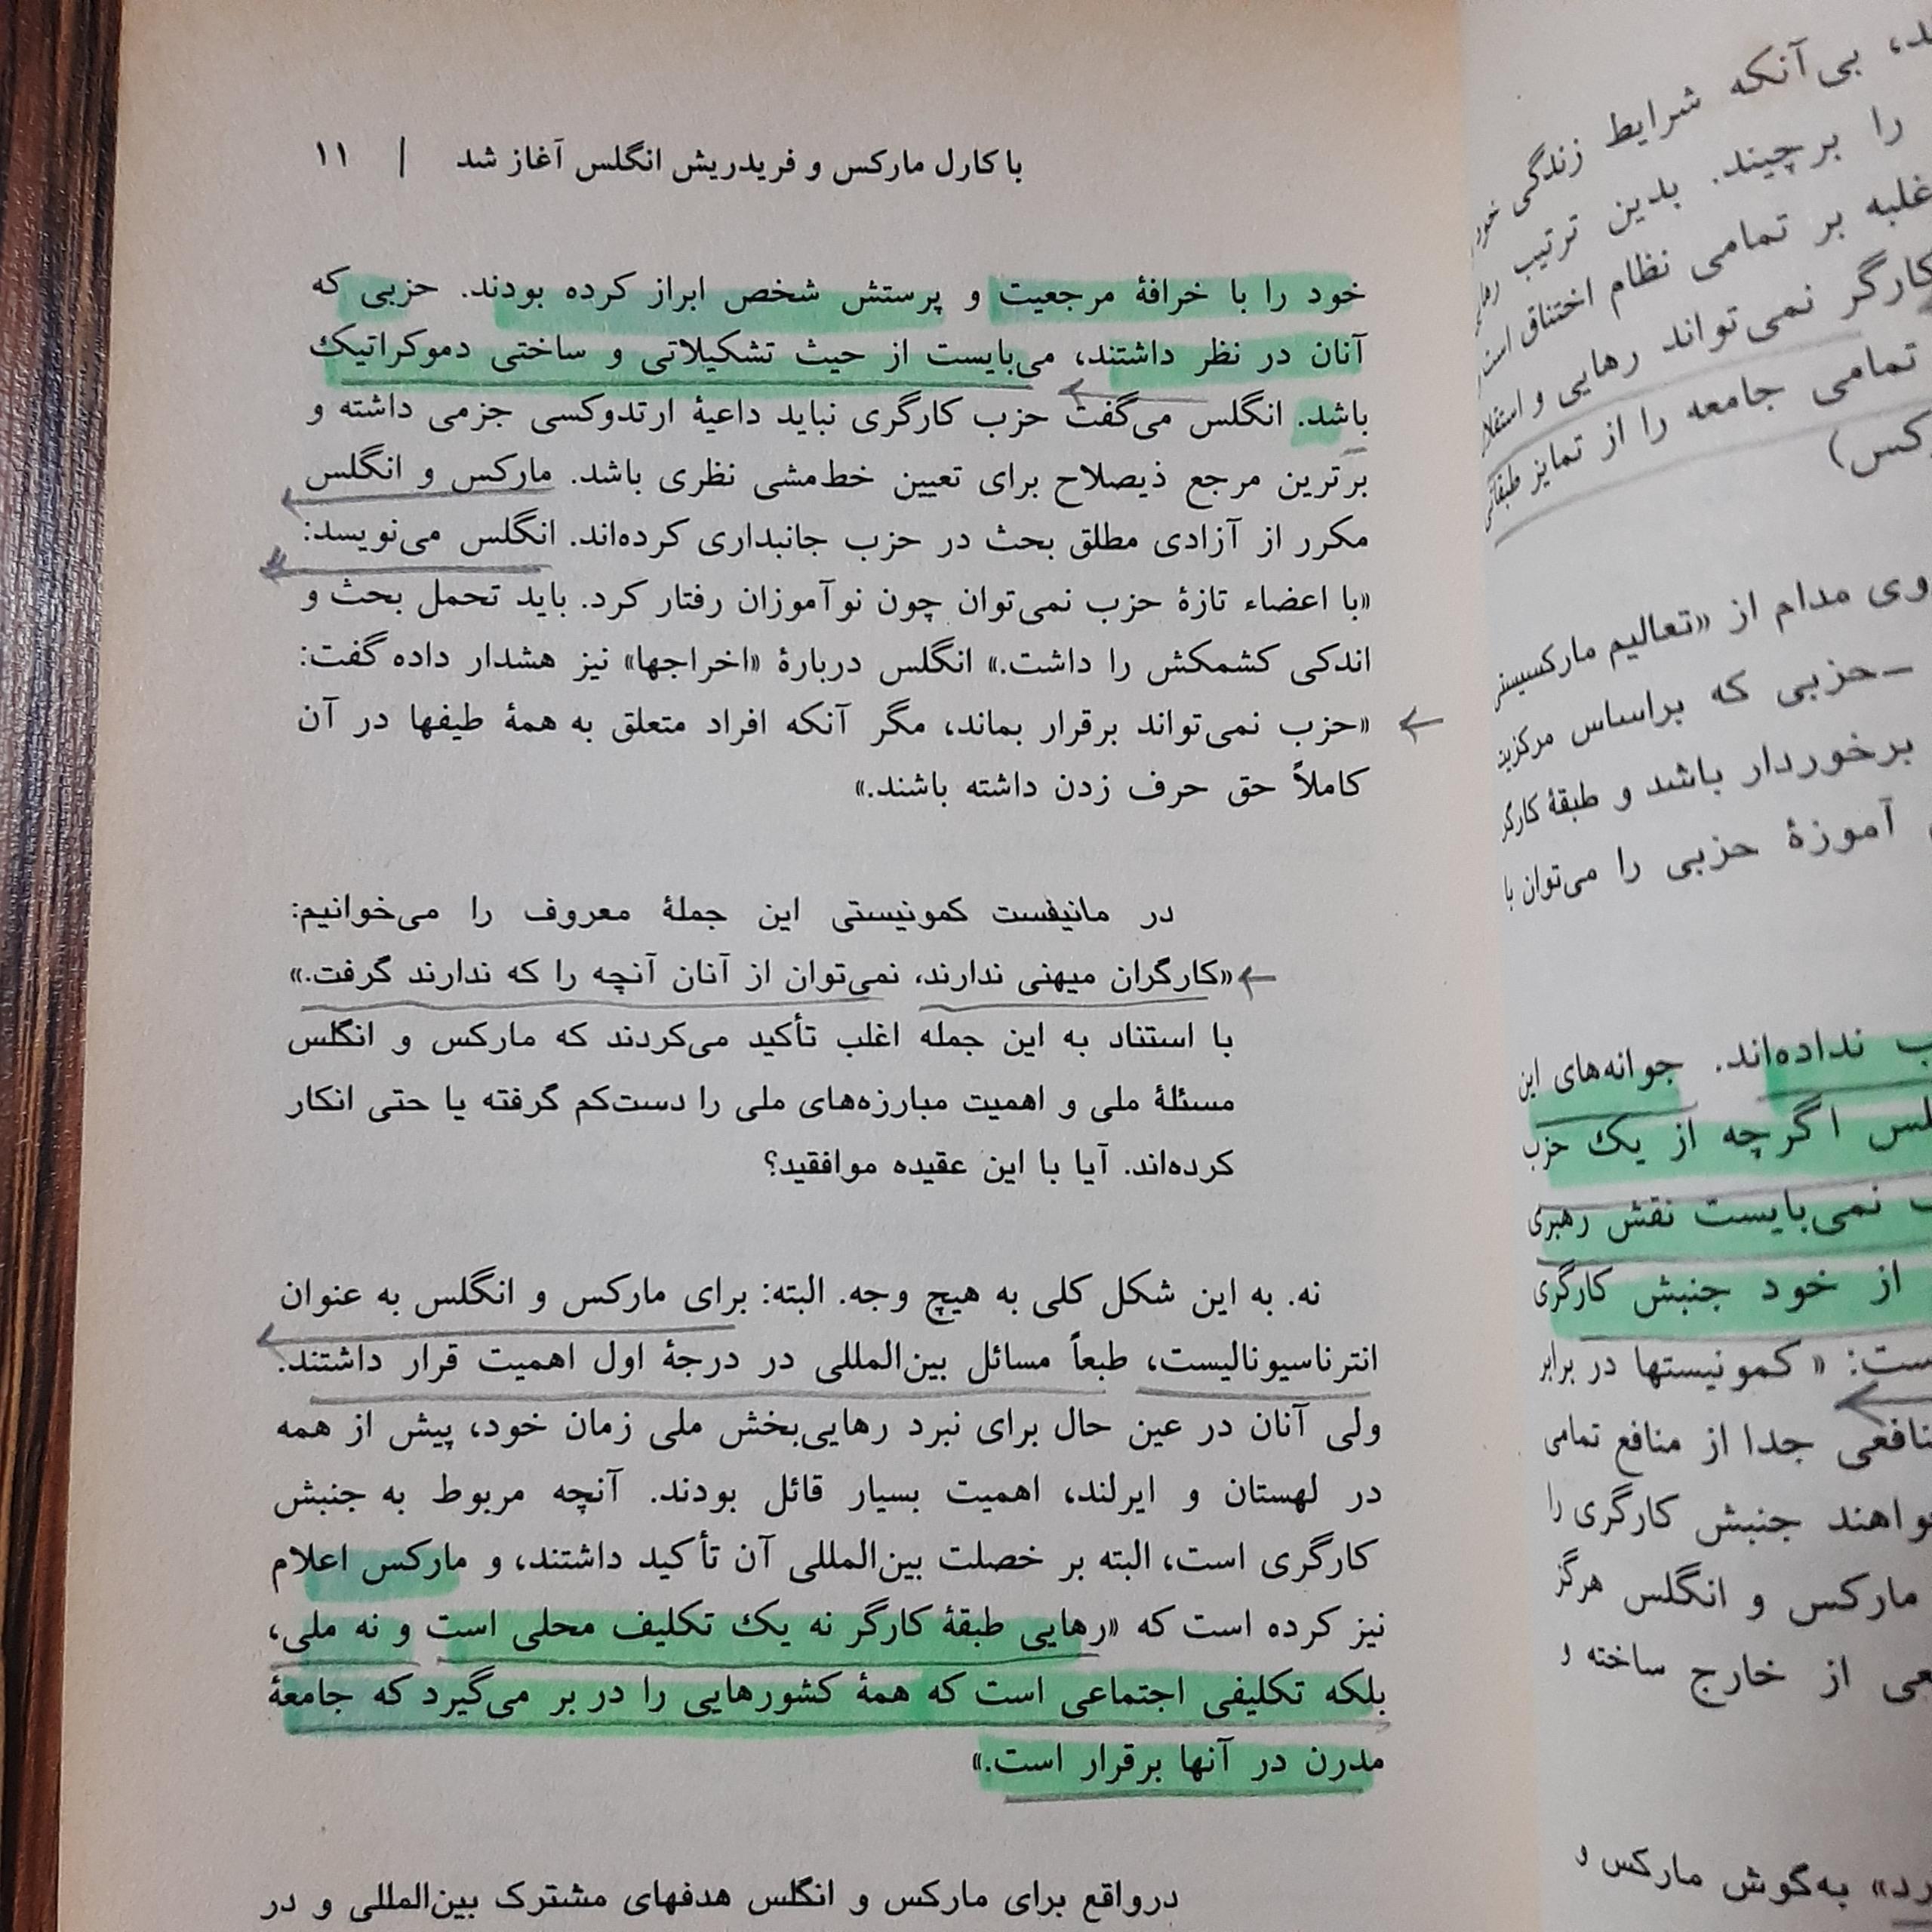 با کارل مارکس و فریدریش انگلس آغاز شد | ۱۱
خود را با خرافهٔ مرجعیت و پرستش شخص ابراز کرده بودند. حزبی که
آنان در نظر داشتند، می‌بایست از حیث تشکیلاتی و ساختی دموکراتیک
باشد. انگلس می‌گفت حزب کارگری نباید داعیهٔ ارتدوکسی جزمی داشته و
برترین مرجع ذیصلاح برای تعیین خط‌مشی نظری باشد. مارکس و انگلس
مکرر از آزادی مطلق بحث در حزب جانبداری کرده‌اند. انگلس می‌نویسد:
«با اعضاء تازهٔ حزب نمی‌توان چون نوآموزان رفتار کرد. باید تحمل بحث و
اندکی کشمکش را داشت.» انگلس دربارهٔ «اخراجها» نیز هشدار داده گفت:
«حزب نمی‌تواند برقرار بماند، مگر آنکه افراد متعلق به همهٔ طیفها در آن
کاملاً حق حرف زدن داشته باشند.»
در مانیفست کمونیستی این جملهٔ معروف را می‌خوانیم:
«کارگران میهنی ندارند، نمی‌توان از آنان آنچه را که ندارند گرفت.»
با استناد به این جمله اغلب تأکید می‌کردند که مارکس و انگلس
مسئلهٔ ملی و اهمیت مبارزه‌های ملی را دست‌کم گرفته یا حتی انکار
کرده‌اند. آیا با این عقیده موافقید؟
نه. به این شکل کلی به هیچ وجه. البته: برای مارکس و انگلس به عنوان
انترناسیونالیست، طبعاً مسائل بین‌المللی در درجهٔ اول اهمیت قرار داشتند.
ولی آنان در عین حال برای نبرد رهایی‌بخش ملی زمان خود، پیش از همه
در لهستان و ایرلند، اهمیت بسیار قائل بودند. آنچه مربوط به جنبش
کارگری است، البته بر خصلت بین‌المللی آن تأکید داشتند، و مارکس اعلام
نیز کرده است که «رهایی طبقهٔ کارگر نه یک تکلیف محلی است و نه ملی،
بلکه تکلیفی اجتماعی است که همهٔ کشورهایی را در بر می‌گیرد که جامعهٔ
مدرن در آنها برقرار است.»
درواقع برای مارکس و انگلس هدفهای مشترک بین‌المللی و در
بی‌آنکه شرایط زندگی
را برچیند. بدین ترتیب
غلبه بر تمامی نظام اختناق است
کارگر نمی‌تواند رهایی و
تمامی جامعه را از تمایز طبقاتی
وی مدام از «تعالیم
حزبی که براساس
برخوردار باشد و طبقهٔ کارگر
آموزهٔ حزبی را می‌توان با
نداده‌اند. جوانه‌های این
اگرچه از یک حزب
نمی‌بایست نقش رهبری
از خود جنبش کارگری
«کمونیستها در برابر
جدا از منافع تمامی
جنبش کارگری را
مارکس و انگلس هرگز
از خارج ساخته و
به‌گوش مارکس و